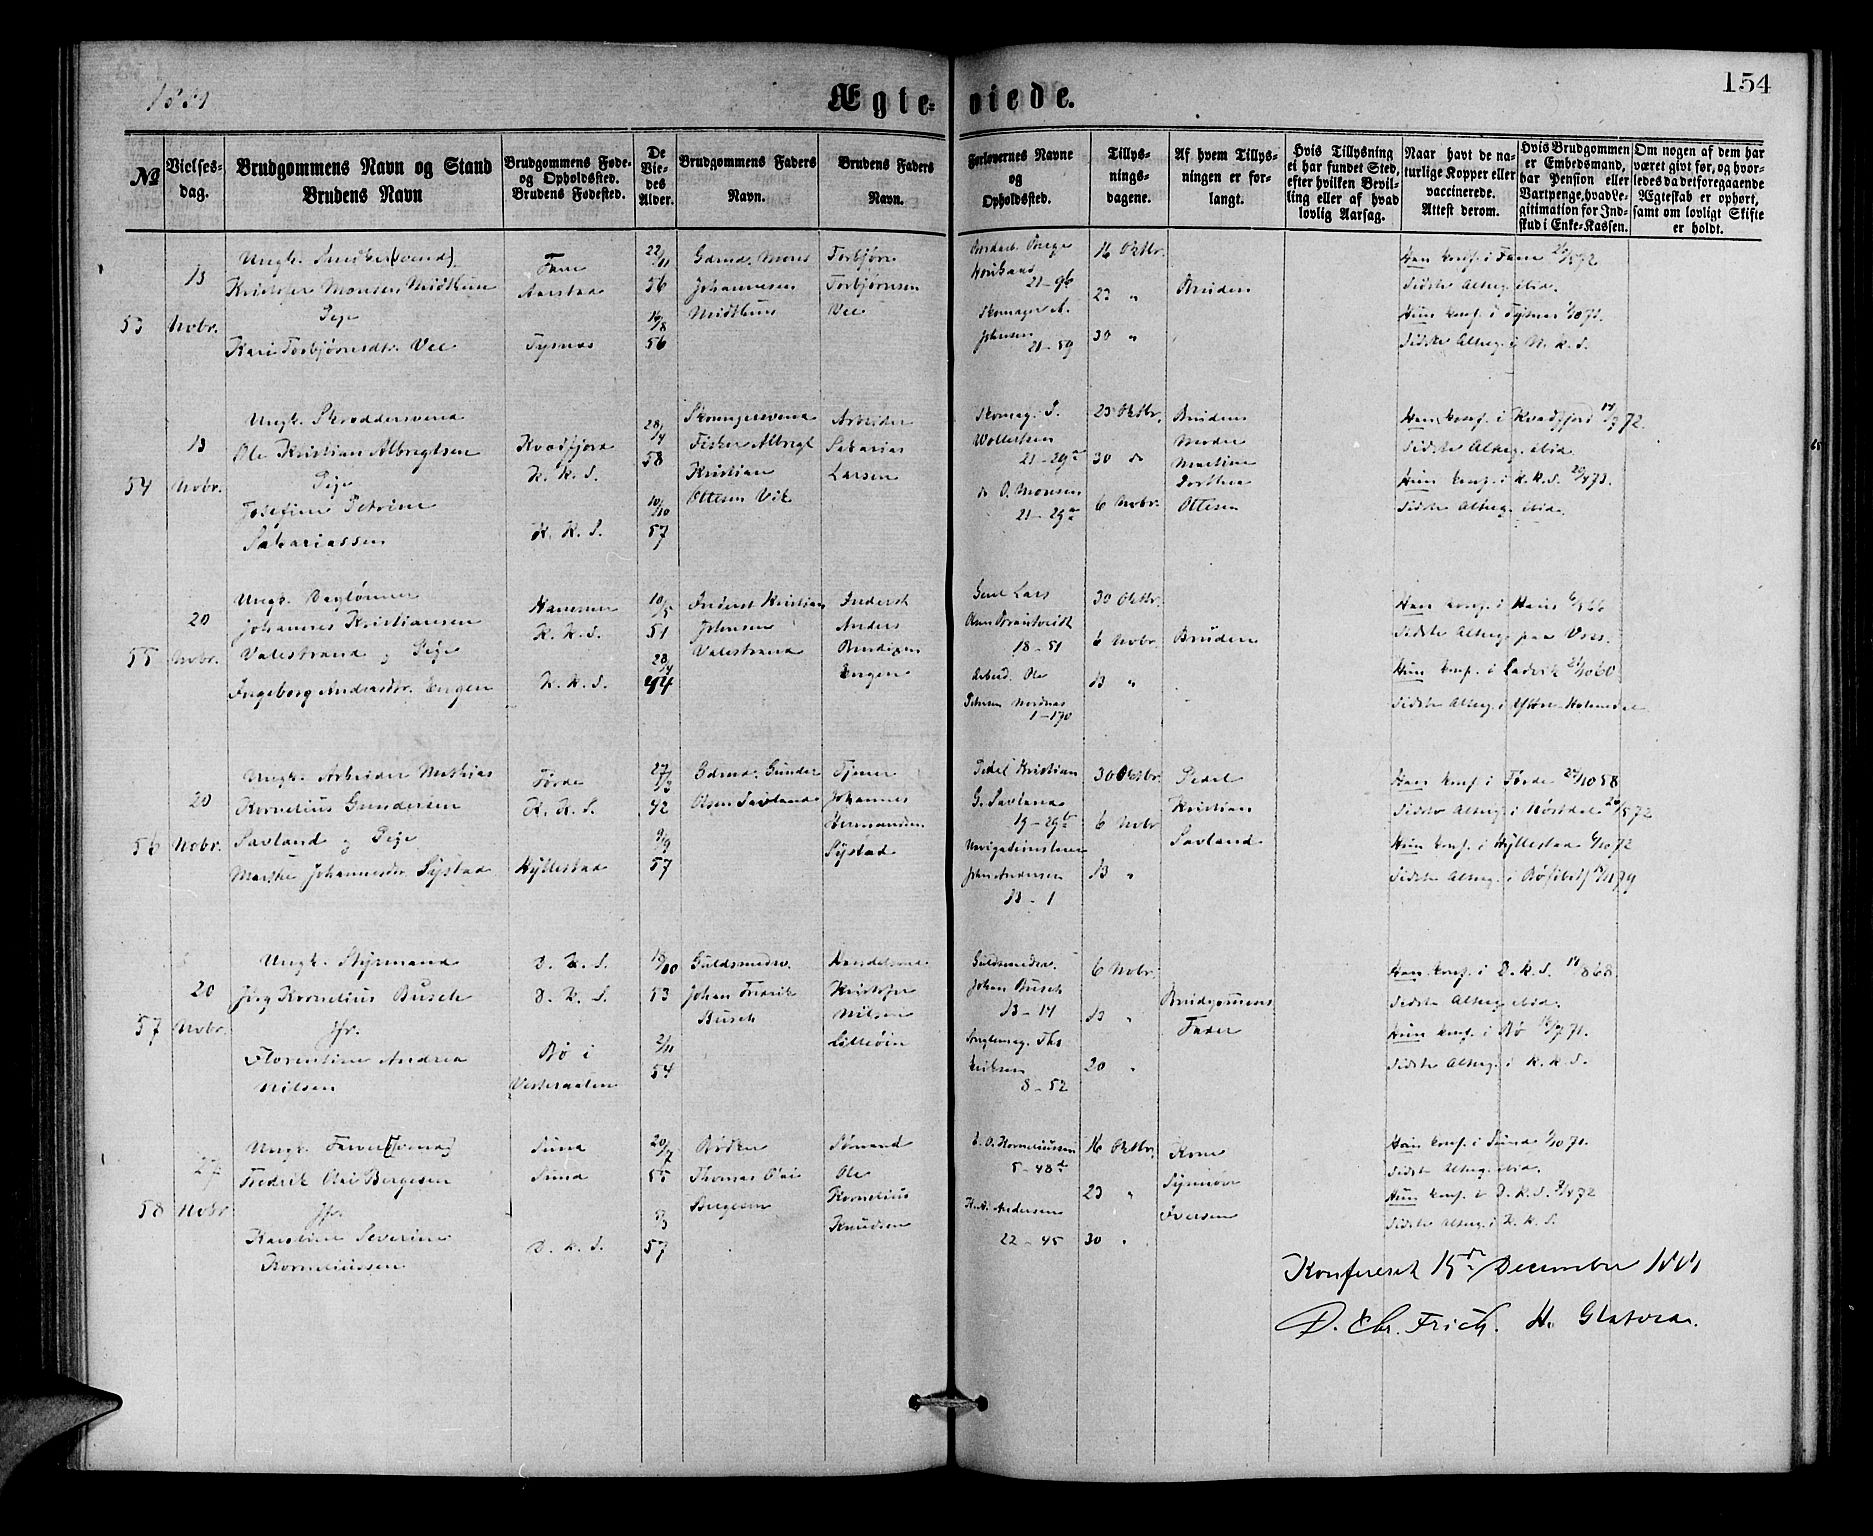 1881
Ægte- viede.
154
№
Vielses-
dag.
Brudgommens Navn og Stand
Brudens Navn
Brudgommens Føde-
og Opholdssted.
Brudens Fødested.
De
Vie-
des
Alder.
Brudgommens Faders
Navn.
Brudens Faders
Navn.
Forlovernes Navne
og
Opholdssted.
Tillys-
nings-
dagene.
Af hvem Tillys-
ningen er for-
langt.
Hvis Tillysning
ei har fundet Sted,
efter hvilken Bevil-
ling eller af hvad
lovlig Aarsag.
Naar havt de na-
turlige Kopper eller
vaccinerede.
Attest derom.
Hvis Brudgommen
er Embedsmand,
har Pension eller
Vartpenge, hvad Le-
gitimation for Ind-
skud i Enke-Kassen.
Om nogen af dem har
været givt før, og hvor-
ledes da det foregaaende
Ægteskab er ophørt,
samt om lovligt Skifte
er holdt.
53
13
Novbr.
Ungk. Snedker(svend)
Kristofer Monsen Midthun
Pige
Kari Torbjørnsdtr. Vee
Fane
Aarstad
Tysnæs
22/11
56
16/8
56
Gdmd. Mons
Johannesen
Midthun
Torbjørn
Torbjørnsen
Vee
21-96
Skomager A.
Johnsen
21-59
16 Oktbr.
23 "
30 "
Bruden
Han konf. i Fane 26/5 72
Sidste Altergang ibid.
Hun konf. i Tysnæs 1/10 71.
Sidste Alterg. i N. K. S.
54
13
Novbr.
Ungk. Skræddersvend
Ole Kristian Albregtsen
Pige
Josefine Petrine
Sakariassen
Kvædfjord
K. K. S.
K. K. S.
28/4
58
10/10
57
Fisker Albregt
Kristian
Ottesen Vik
Arbeider
Sakarias
Larsen
Skomag. P.
Wollertsen
21-29a
do O. Monsen
21-29a
23 Oktbr.
30 do
6 Novbr.
Brudens
Moder
Martine
Dorthea
Ottesen
Han konf. i Kvædfjord 14/7 72.
Sidste Alterg. ibid.
Hun konf. i K. K. S. 20/4 73.
Sidste Alterg. ibid.
55
20
Novbr.
Ungk. Daglønner
Johannes Kristiansen
Valestrand og Pige
Ingeborg Andersdtr. Engen
Hammer
K. K. S.
K. K. S.
10/5
51
28/4
44
Inderst Kristian
Johnsen
Valestrand
Inderst
Anders
Engen
Lars
18-51
Arbeid. Ole
Petersen Nordnæs
1-170
30 Oktbr.
6 Novbr.
13 "
Bruden
Han konf. i Haus 6/5 66
Sidste Alterg. paa Voss.
Hun konf. i Ladvik 21/10 60
Sidste Alterg. i Yttre-Holmedal
56
20
Novbr.
Ungk. Arbeider Mathias
Kornelius Gundersen
Savland og Pige
Marthe Johannesdtr Systad
Førde
K. K. S.
Hyllestad
27/3
42
9/9
57
Gdmd. Gunder
Olsen Savland
Tjener
Johannes
Hermansen
Systad
Pedel Kristian
G. Savland
19-29b
Navigationslærer
John Andersen
13-1
30 Oktbr.
6 Novbr
13 "
Pedel
Kristian
Savland
Han konf. i Førde 24/10 58
Sidste Alterg. i Møstdal 26/5 72
Hun konf. i Hyllestad 6/10 72
57
20
Novbr.
Ungk. Styrmand
Jørg Kornelius Busch
Jfr.
Florentine Andrea
Nilsen
D. K. S.
D. K. S.
Bø i
Vesteraalen
19/10
53
2/11
54
Guldsmedm.
Johan Fredrik
Busch
Handelsmd
Kristofer
Nilsen
Lilleøin
Guldsmedm.
Johan Busch
13-14
Ths
Eriksen
8-52
6 Novbr.
13 "
20 "
Brudgommens
Fader
Han konf. i D. K. S. 19/8 68.
Sidste Alterg. ibid.
Hun konf. i Bø 16/7 71.
Sidste Alterg. i K. K. S.
58
27
Novbr
Ungk. Farver(svend)
Fredrik Olai Bergesen
Jfr.
Karoline Severine
Korneliussen
Sund
Sund
D. K. S.
20/7
55
57
Bødker
Thomas Olai
Bergesen
Sømand
Ole
Kornelius
Knudsen
E. O. Korneliussen
5-48d
H. A. Andersen
22-45
16 Oktbr.
23 "
30 "
Kone
Synnøve
Iversen
Han konf. i Sund 1/10 71.
Sidste Alterg. ibid.
Hun konf. i D. K. S. 2/4 72
Sidste Alterg. i K. K. S.
Konfereret 15de December 1881
D. Chr. Frich. H. Glatved.